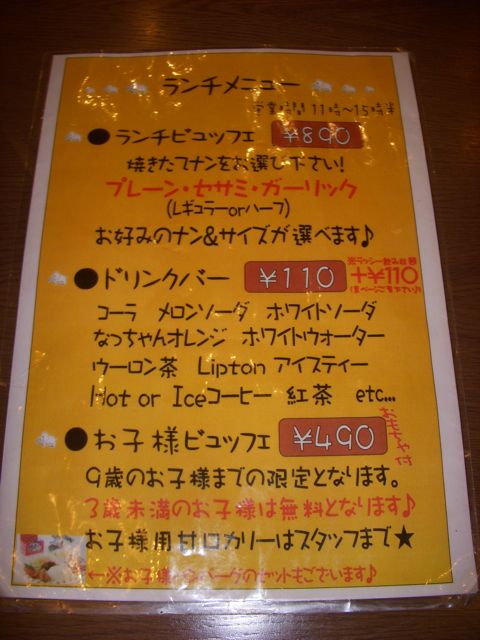 ランチメニュー
営業時間 11時～15時半
●ランチビュッフェ ¥890
焼きたてナンをお選び下さい!
プレーン・セサミ・ガーリック
(レギュラーorハーフ)
お好みのナン&サイズが選べます♪
●ドリンクバー ¥110
※ラッシー飲み放題
+¥110
コーラ メロンソーダ ホワイトソーダ
なっちゃんオレンジ ホワイトウォーター
ウーロン茶 Lipton アイスティー
Hot or Iceコーヒー 紅茶 etc...
●お子様ビュッフェ ¥490
おもちゃ付
9歳のお子様までの限定となります。
3歳未満のお子様は無料となります♪
お子様用甘口カリーはスタッフまで★
←※お子様ハンバーグのセットもございます♪